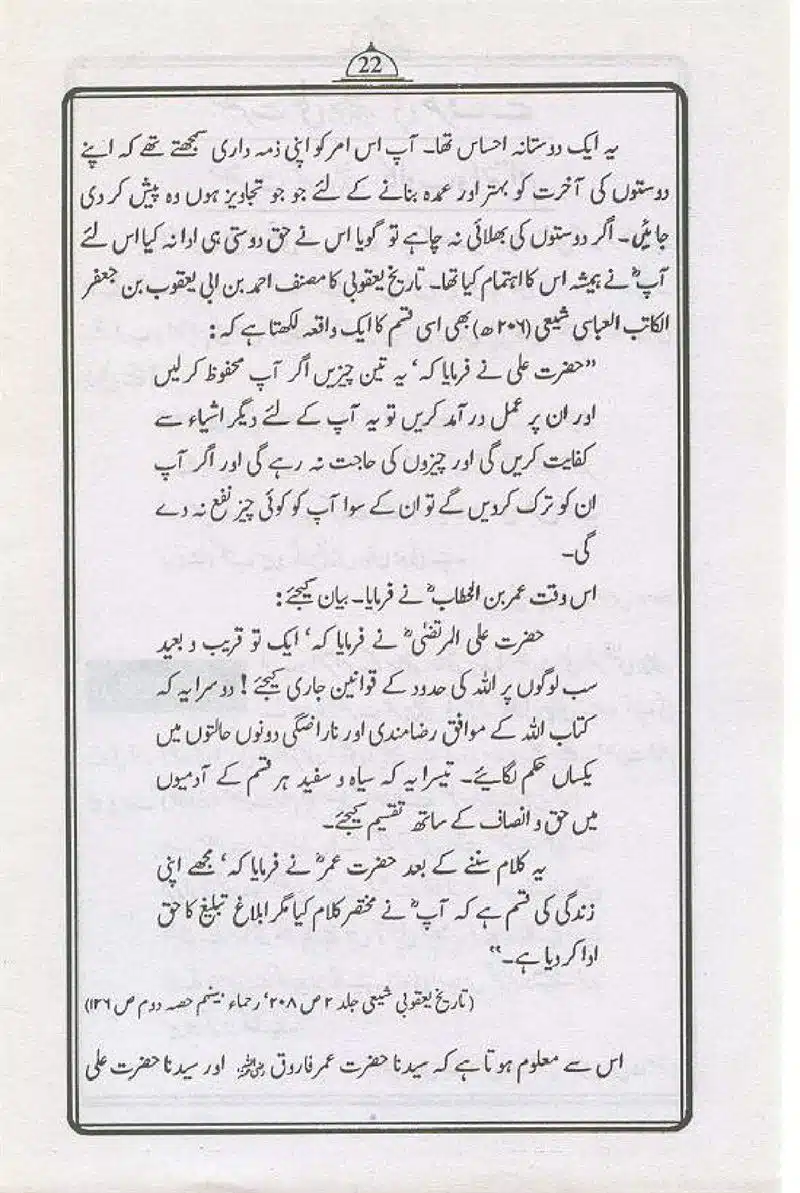 22
یہ ایک دوستانہ احساس تھا۔ آپ اس امر کو اپنی ذمہ داری سمجھتے تھے کہ اپنے
دوستوں کی آخرت کو بہتر اور عمدہ بنانے کے لئے جو جو تجاویز ہوں وہ پیش کر دی
جائیں۔ اگر دوستوں کی بھلائی نہ چاہے تو گویا اس نے حق دوستی ہی ادا نہ کیا اس لئے
آپؓ نے ہمیشہ اس کا اہتمام کیا تھا۔ تاریخ یعقوبی کا مصنف احمد بن ابی یعقوب بن جعفر
الکاتب العباسی شیعی (۲۰۶ھ) بھی اسی قسم کا ایک واقعہ لکھتا ہے کہ:
”حضرت علی نے فرمایا کہ‘ یہ تین چیزیں اگر آپ محفوظ کرلیں
اور ان پر عمل درآمد کریں تو یہ آپ کے لئے دیگر اشیاء سے
کفایت کریں گی اور چیزوں کی حاجت نہ رہے گی اور اگر آپ
ان کو ترک کردیں گے تو ان کے سوا آپ کو کوئی چیز نفع نہ دے
گی۔
اس وقت عمر بن الخطابؓ نے فرمایا۔ بیان کیجئے:
حضرت علی المرتضیٰؓ نے فرمایا کہ‘ ایک تو قریب و بعید
سب لوگوں پر اللہ کی حدود کے قوانین جاری کیجئے! دوسرا یہ کہ
کتاب اللہ کے موافق رضامندی اور ناراضگی دونوں حالتوں میں
یکساں حکم لگائیے۔ تیسرا یہ کہ سیاہ و سفید ہر قسم کے آدمیوں
میں حق و انصاف کے ساتھ تقسیم کیجئے۔
یہ کلام سننے کے بعد حضرت عمرؓ نے فرمایا کہ‘ مجھے اپنی
زندگی کی قسم ہے کہ آپؓ نے مختصر کلام کیا مگر ابلاغ تبلیغ کا حق
ادا کر دیا ہے۔“
(تاریخ یعقوبی شیعی جلد ۲ ص ۲۰۸‘ رحماء بینھم حصہ دوم ص ۱۲۶)
اس سے معلوم ہوتا ہے کہ سیدنا حضرت عمر فاروق رضی اللہ عنہ اور سیدنا حضرت علی